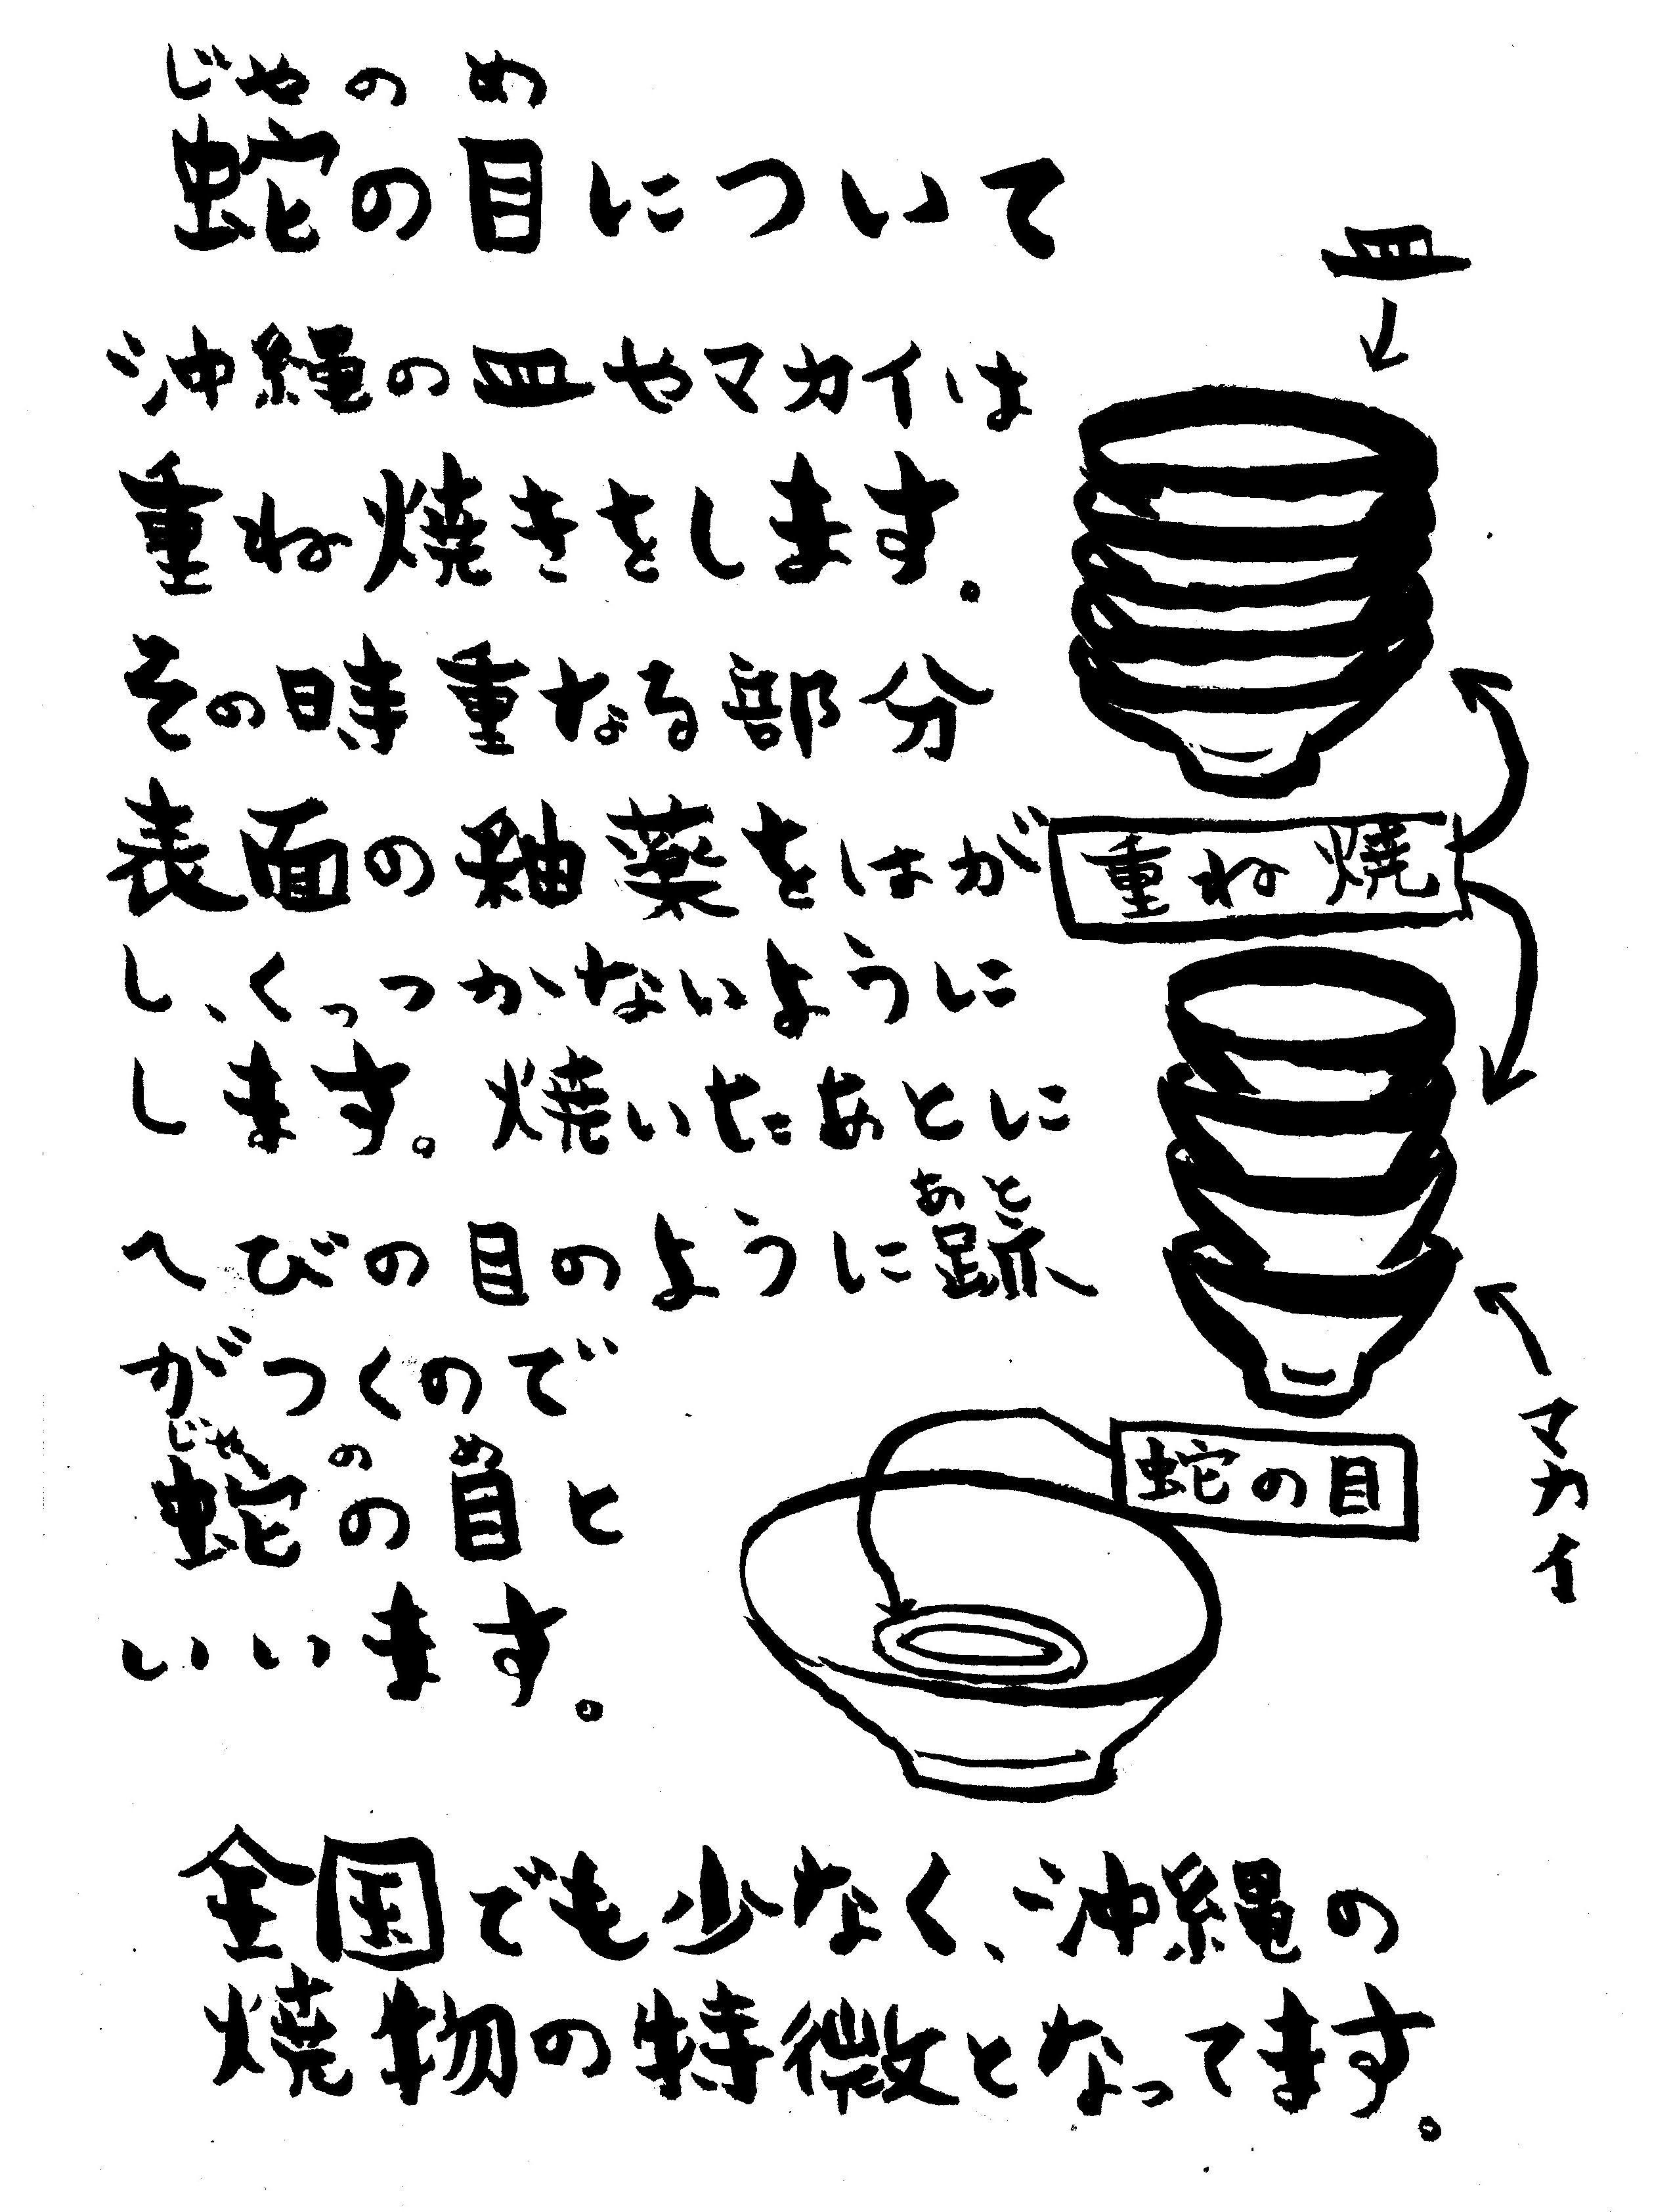 じゃのめ
蛇の目について
沖縄の皿やマカイは
重ね焼きをします。
その時重なる部分
表面の釉薬をはが
し、くっつかないように
します。焼いたあとに
あと
へびの目のように跡
がつくので
じゃのめ
蛇の目と
いいます。
皿
重ね焼
マカイ
蛇の目
全国でも少なく、沖縄の
焼物の特徴となってます。